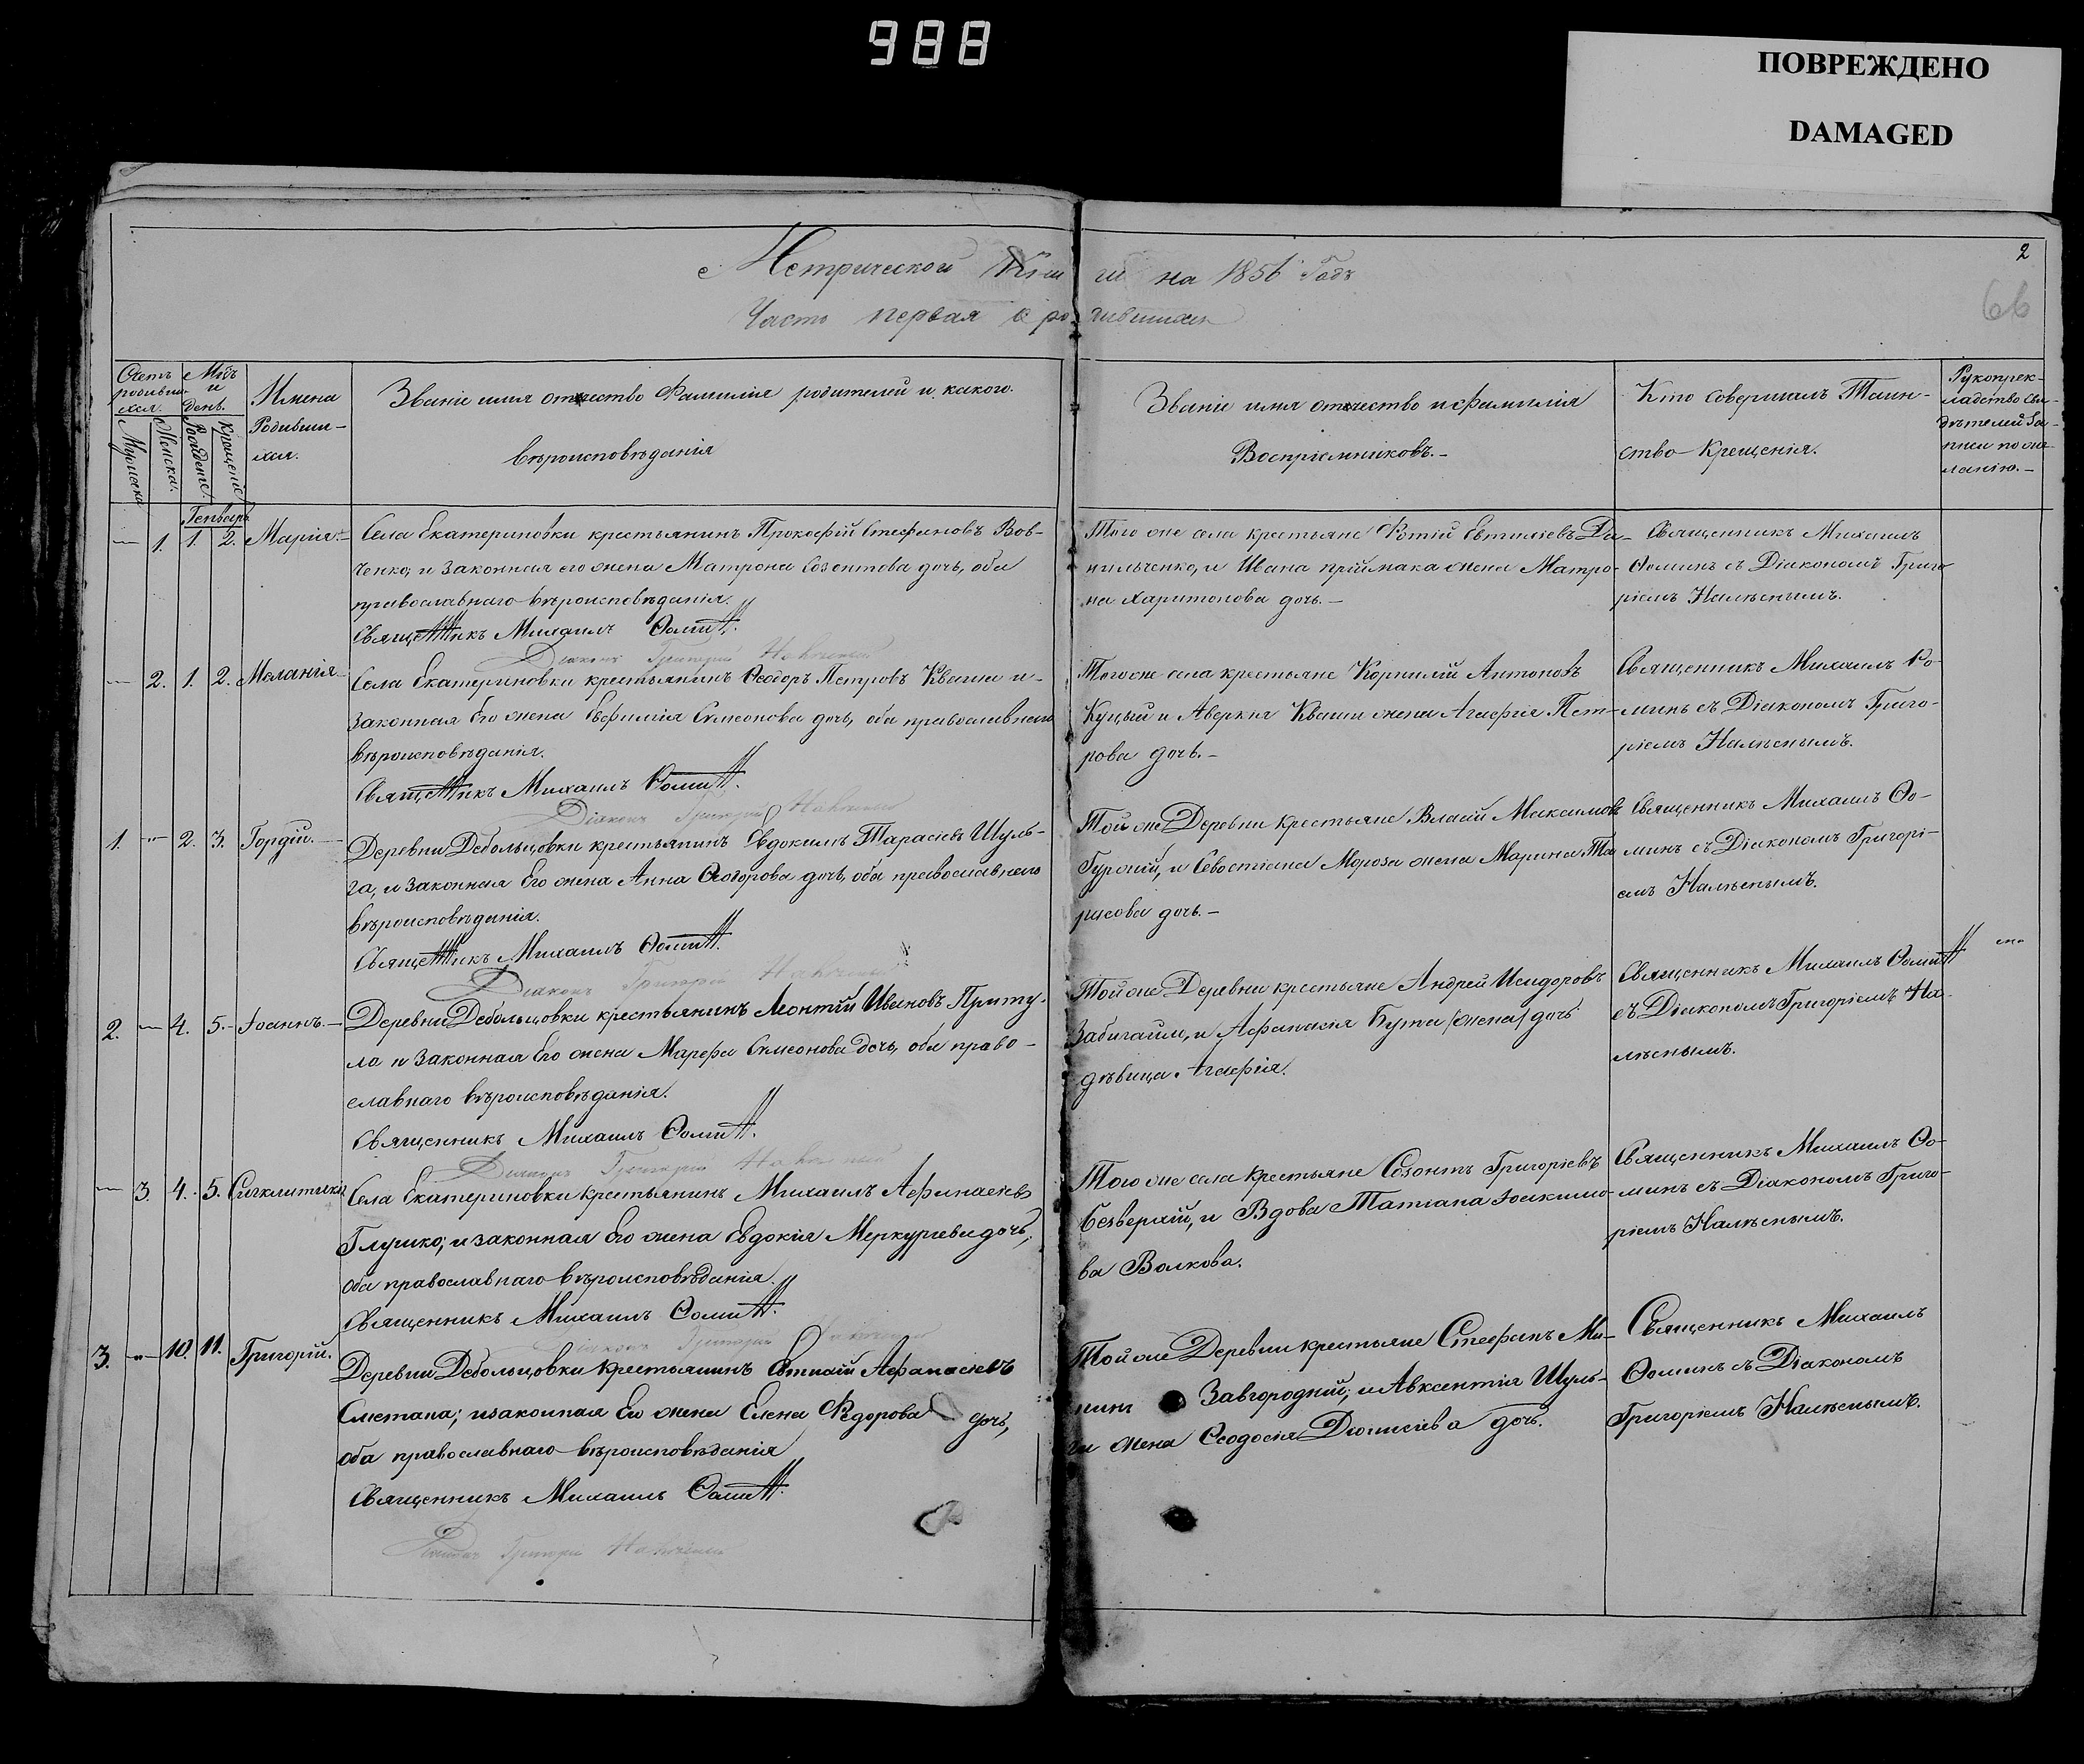 988
ПОВРЕЖДЕНО
DAMAGED
2
66
Метрической Книги на 1856 Годъ
Часть первая о родившихся
Счетъ родивших-ся.
Мужеска
Женска.
М҃цъ и день.
Рожденіе.
Крещеніе
Имена Родивши-хся.
Званіе имя отчество Фамилія родителей и какого.
вѣроисповѣданія
Званіе имя отчество и фамилія
Воспріемниковъ.-
Кто совершалъ Таин-
ство Крещенія.
Рукоприк-
ладство сви-
дѣтелей За-
писи по же-
ланію.-
Генварь
— 1. 1. 2. Марія.-
Села Екатериновки крестьянинъ Прокофій Стефановъ Вов-
ченко, и законная его жена Матрона Созонтова дочь, оба
православнаго вѣроисповѣданія.
Священникъ Михаилъ Ѳоминъ.
Діаконъ Григорій
Того же села крестьяне Фотій Евтихіевъ Да-
нильченко, и Ивана пріймака жена Матро-
на Харитонова дочь.-
Священникъ Михаилъ
Ѳоминъ съ Діакономъ Григо
ріемъ Налѣснымъ.
— 2. 1. 2. Меланія
Села Екатериновки крестьянинъ Ѳеодоръ Петровъ Кваша и-
законная Его жена Евфимія Симеонова дочь, оба православнаго
вѣроисповѣданія.
Священникъ Михаилъ Фоминъ.
Діаконъ Григорій
Того же села крестьяне Корнилій Антоновъ
Куцый и Аверкія Кваши жена Агафія Пет-
рова дочь.-
Священникъ Михаилъ Фо-
минъ съ Діакономъ Григо-
ріемъ Налѣснымъ.
1. — 2. 3. Гордій.-
Деревни Дебольцовки крестьянинъ Евдокимъ Тарасіевъ Шуль-
га, и законная Его жена Анна Ѳеодорова дочь, оба православнаго
вѣроисповѣданія.
Священникъ Михаилъ Ѳоминъ.
Діаконъ Григорій
Той же Деревни крестьяне Власій Максимовъ
Гурскій, и Севостіана Мороза жена Марина Та
расова дочь.-
Священникъ Михаилъ Ѳо-
минъ съ Діакономъ Григорі-
емъ Налѣснымъ.
2. — 4. 5.- Іоаннъ.-
Деревни Дебольцовки крестьянинъ Леонтій Ивановъ Приту-
ла и законная Его жена Марфа Симеонова дочь, оба право-
славнаго вѣроисповѣданія.
Священникъ Михаилъ Ѳоминъ.
Діаконъ Григорій
Той же Деревни крестьяне Андрей Исидоровъ
Забигайло, и Афанасія Бута (жена) дочь
дѣвица Агафія.
Священникъ Михаилъ Ѳоминъ
съ Діакономъ Григоріемъ На-
лѣснымъ.
— 3. 4. 5. Сигклитикія
Села Екатериновки крестьянинъ Михаилъ Афанасіевъ
Глушко; и законная Его жена Евдокія Меркуріева дочь,
оба православнаго вѣроисповѣданія.
Священникъ Михаилъ Ѳоминъ.
Діаконъ Григорій
Того же села крестьяне Созонтъ Григоріевъ
Безверхій, и Вдова Татіана Іоакимо-
ва Волкова.
Священникъ Михаилъ Ѳо-
минъ съ Діакономъ Григо-
ріемъ Налѣснымъ.
3. — 10. 11. Григорій.
Деревни Дебольцовки крестьянинъ Евтихій Афанасіевъ
Сметана; и законная Его жена Елена Федорова дочь,
оба православнаго вѣроисповѣданія
Священникъ Михаилъ Ѳоминъ.
Діаконъ Григорій
Той же Деревни крестьяне Стефанъ Ми-
нинъ Завгородній; и Авксентія Шуль-
ги жена Ѳеодосія Діонисіева дочь.
Священникъ Михаилъ
Ѳоминъ съ Діакономъ
Григоріемъ Налѣснымъ.